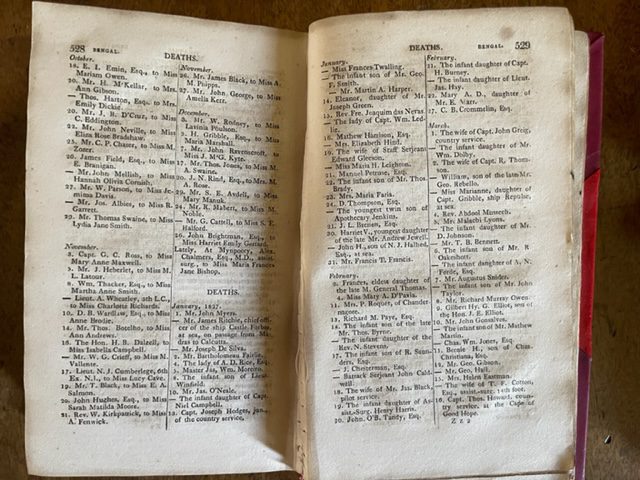 528
BENGAL.
DEATHS.
October.
18. E. I. Emin, Esq., to Miss
Mariam Owen.
20. Mr. H. M'Kellar, to Mrs.
Ann Gibson.
— Thos. Harton, Esq., to Mrs.
Emily Dickie.
22. Mr. J. R. D'Cruz, to Miss
C. Bedington.
22. Mr. John Neville, to Miss
Eliza Rose Bradshaw.
25. Mr. C. P. Chater, to Miss M.
26. James Field, Esq., to Miss
E. Branigan.
— Mr. John Mellish, to Miss
Hannah Olivia Cornish.
27. Mr. W. Parson, to Miss Je-
mima Davis.
— Mr. Jos. Albies, to Miss E.
Garrett.
29. Mr. Thomas Swaine, to Miss
Lydia Jane Smith.
November.
8. Capt. G. C. Ross, to Miss
Mary Anne Maxwell.
9. Mr. J. Heberlet, to Miss M.
L. Latour.
8. Wm. Thacker, Esq., to Miss
Martha Anne Smith.
— Lieut. A. Wheatley, 5th L.C.,
to Miss Charlotte Richards.
10. D. B. Wardlaw, Esq., to Miss
Anne Brodie.
14. Mr. Thos. Botelho, to Miss
Ann Andrews.
16. The Hon. H. B. Dalzell, to
Miss Isabella Campbell.
— Mr. W. G. Crieff, to Miss M.
Vallente.
17. Lieut. N. J. Cumberlege, 6th
Ex. N.I., to Miss Lucy Cave.
19. Mr. T. Black, to Miss E. A.
Salmon.
20. John Hughes, Esq., to Miss
Sarah Matilda Moose.
21. Rev. W. Kirkpatrick, to Miss
A. Fenwick.
November.
26. Mr. James Black, to Miss A.
M. Phipps.
27. Mr. John George, to Miss
Amelia Kerr.
December.
2. Mr. H. W. Rodney, to Miss
Lavinia Poulson.
3. H. Gribble, Esq., to Miss
Maria Marshall.
— Mr. John Ravenscroft, to
Miss J. M'G. Kyte.
17. Mr. Thos. Jones, to Miss M.
A. Swaine.
20. J. N. Rind, Esq., to Mrs. M.
A. Rose.
23. Mr. S. E. Avdell, to Miss
Mary Manuk.
24. Mr. R. Mabert, to Miss M.
Noble.
— Mr. G. Cattell, to Miss S. E.
Halford.
26. John Brightman, Esq., to
Miss Harriet Emily Gattard.
Lately. At Mynpoory, Alex.
Chalmers, Esq., M.D., assist.
surg., to Miss Maria Frances
Jane Bishop.
DEATHS.
January, 1827.
1. Mr. John Myers.
— Mr. James Ritchie, chief offi-
cer of the ship Castle Forbes,
at sea, on passage from Ma-
dras to Calcutta.
— Mr. Joseph De Silva.
2. Mr. Bartholomew Fairlie.
4. The lady of A. D. Rice, Esq.
5. Master Jas. Wm. Morono.
8. The infant son of Lieut.
Winfield.
10. Mr. Jas. O'Neale.
— The infant daughter of Capt.
Niel Campbell.
13. Capt. Joseph Hodges, jun.,
of the country service.
DEATHS.
BENGAL.
529
January.
— Miss Frances Twalling.
— The infant son of Mr. Geo.
F. Smith.
— Mr. Martin A. Harper.
14. Eleanor, daughter of Mr.
Joseph Green.
15. Rev. Fre. Joaquim das Nevas.
— The lady of Capt. Wm. Led-
lie.
16. Mathew Harrison, Esq.
— Mrs. Elizabeth Hind.
19. The wife of Staff Serjeant
Edward Gleeson.
— Miss Maria H. Leighton.
21. Manuel Petruse, Esq.
22. The infant son of Mr. Thos.
Brady.
23. Mrs. Maria Faria.
24. D. Thompson, Esq.
— The youngest twin son of
Apothecary Jenkins.
21. J. L. Bernen, Esq.
30. Harriet V., youngest daughter
of the late Mr. Andrew Jewell.
— John H., son of N. J. Halhed,
Esq., at sea.
31. Mr. Francis T. Francis.
February.
2. Frances, eldest daughter of
the late M. General Thomas.
4. Miss Mary A. D'Paxia.
11. Mrs. P. Roquer, of Chander-
nagore.
13. Richard M. Paye, Esq.
14. The infant son of the late
Mr. Thos. Byrne.
— The infant daughter of the
Rev. N. Stevens.
17. The infant son of R. Saun-
ders, Esq.
— J. Chesterman, Esq.
— Barrack Serjeant John Cald-
well.
18. The wife of Mr. Jas. Black,
pilot service.
19. The infant daughter of As-
sist.-Surg. Henry Harris.
20. John O'B. Tandy, Esq.
February.
21. The infant daughter of Capt.
H. Burney.
— The infant daughter of Lieut.
Jas. Hay.
23. Mary A. D., daughter of
Mr. E.
27. C. B. Crommelin, Esq.
March.
1. The wife of Capt. John Greig,
country service.
— The infant daughter of Mr.
Wm. Dolby.
2. The wife of Capt. R. Thom-
son.
— William, son of the late Mr.
Geo. Rebello.
— Miss Marianne, daughter of
Capt. Gribble, ship Repulse,
at sea.
4. Rev. Abdool Musseeh.
5. Mr. Malachi Lyons.
— The infant daughter of Mr.
D. Johnson.
— Mr. T. B. Bennett.
6. The infant son of Mr. R.
Oakshott.
— The infant daughter of A.
N. Esq.
7. Mr. Augustus Snider.
— The infant son of Mr. John
Taylor.
8. Mr. Richard Murray Owen.
9. Gilbert Hr. G. Elliot, son of
the Hon. J. E. Elliot.
10. Mr. John Gonsalves.
— The infant son of Mr. Mathew
Martin.
— Chas. Wm. Jones, Esq.
12. Becale H., son of Chas.
Christiana, Esq.
12. Mr. Geo. Gibson.
— Mr. Geo. Hall.
15. Mrs. Helen Eastman.
— The wife of T. F. Cotton,
Esq., assist.-surg. 14th foot.
16. Capt. Thos. Howard, coun-
try service, at the Cape of
Good Hope.
Z z 2